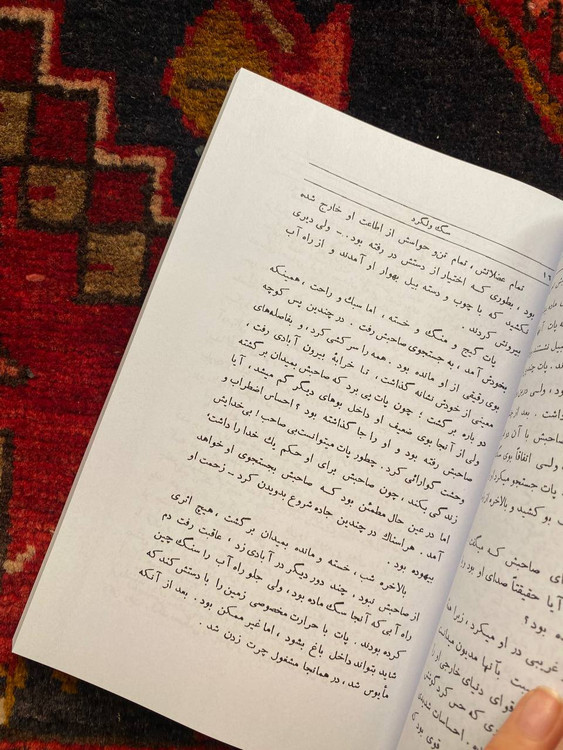 سگ ولگرد
۱۶
تمام عضلاتش ، تمام تن و حواسش از اطاعت او خارج شده
بود ، بطوری که اختیار از دستش در رفته بود . – ولی دیری
نکشید که با چوب و دسته بیل بهوار او آمدند و از راه آب
بیرونش کردند .
پات گیج و منگ و خسته ، اما سبك و راحت ، همینکه
بخودش آمد ، به جستجوی صاحبش رفت . در چندین پس کوچه
بوی رقیقی از او مانده بود . همه را سرکشی کرد ، و بفاصله‌های
معینی از خودش نشانه گذاشت ، تا خرابهٔ بیرون آبادی رفت ،
دو باره برگشت ؛ چون پات پی برد که صاحبش بمیدان برگشته
ولی از آنجا بوی ضعیف او داخل بوهای دیگر گم میشد ، آیا
صاحبش رفته بود و او را جا گذاشته بود ؟ احساس اضطراب و
وحشت گوارائی کرد . چطور پات میتوانست بی صاحب ! بی خدایش
زندگی بکند ، چون صاحبش برای او حکم یك خدا را داشت،
اما در عین حال مطمئن بود که صاحبش بجستجوی او خواهد
آمد . هراسناك در چندین جاده شروع بدویدن کرد – زحمت او
بیهوده بود .
بالاخره شب ، خسته و مانده بمیدان برگشت ، هیچ اثری
از صاحبش نبود ، چند دور دیگر در آبادی زد ، عاقبت رفت دم
راه آبی که آنجا سگ ماده بود ، ولی جلو راه آب را سنگ چین
کرده بودند . پات با حرارت مخصوصی زمین را با دستش کند که
شاید بتواند داخل باغ بشود ، اما غیر ممکن بود . بعد از آنکه
مأیوس شد ، در همانجا مشغول چرت زدن شد .